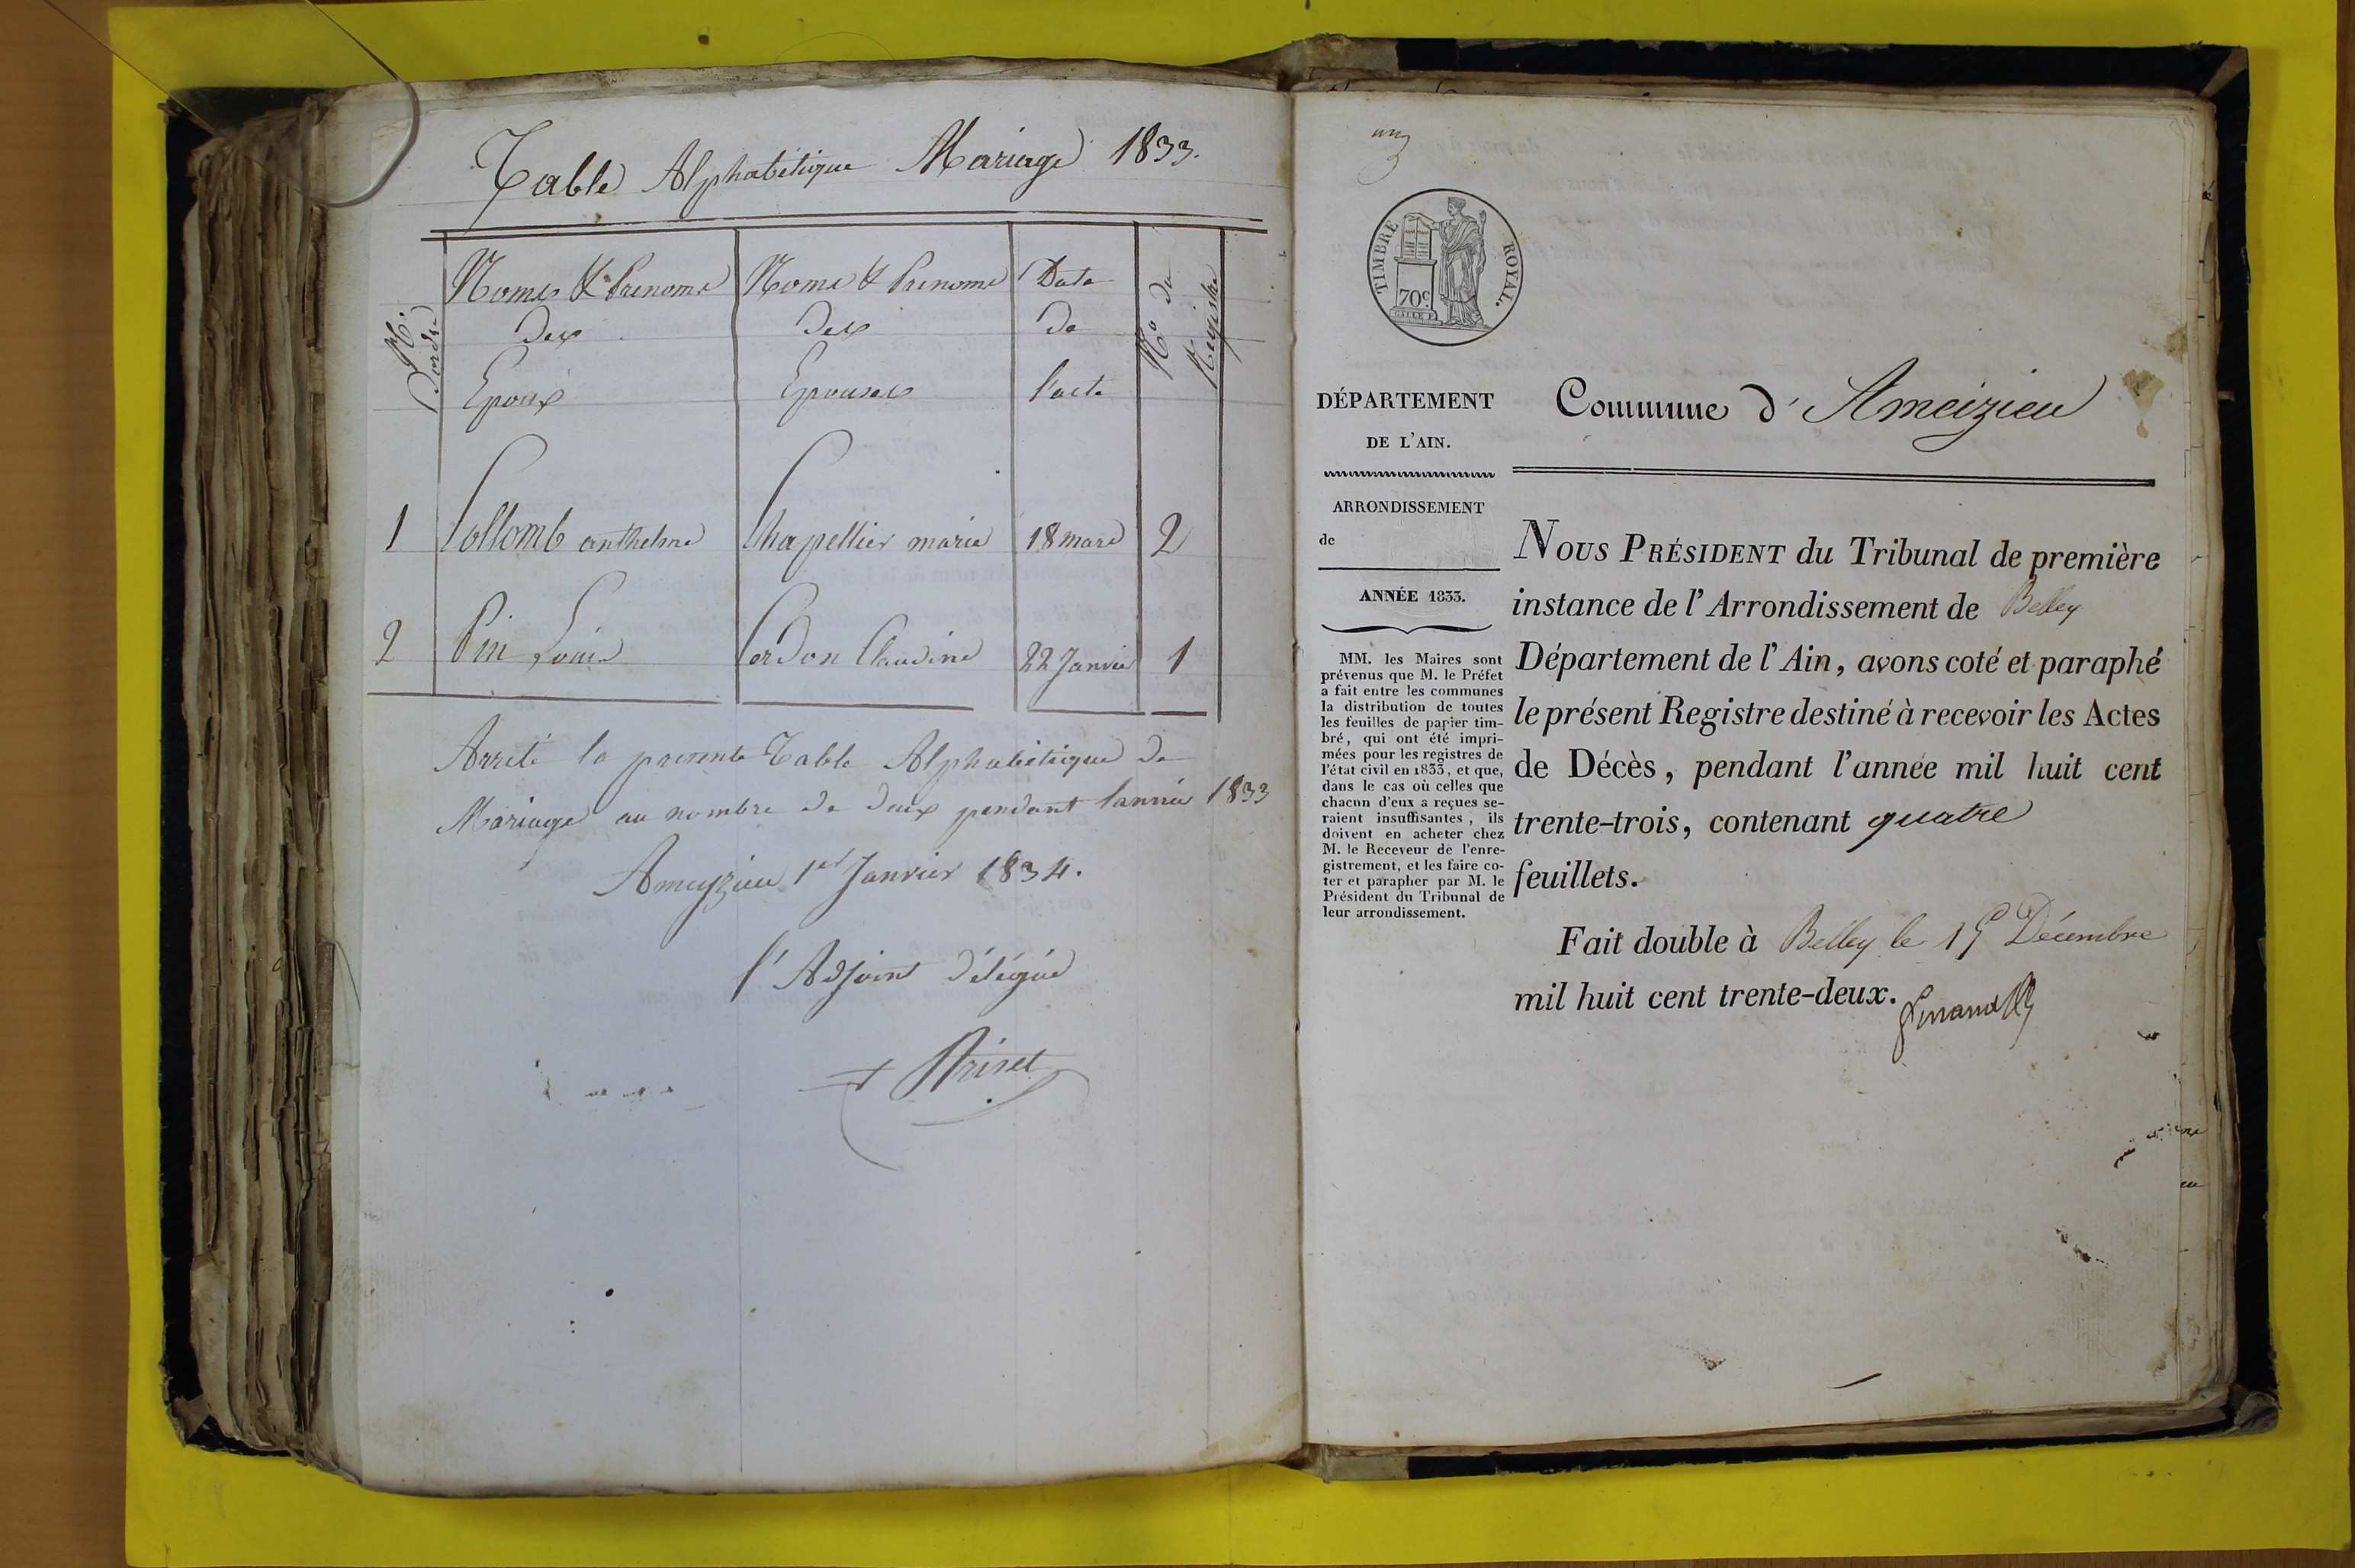 Table Alphabétique Mariage 1833.
No. d'ordre
Noms & Prenoms des Epoux
Noms & Prenoms des Epouses
Date de l'acte
No du Registre
1 Collomb anthelme Chapellier marie 18 mars 2
2 Pin Louis Cordon Claudine 22 Janvier 1
Arrêté la presente Table Alphabétique de
Mariage au nombre de deux pendant l'année 1833
Ameyzieu 1er Janvier 1834.
l'Adjoint délégué
un
TIMBRE ROYAL.
70c
DÉPARTEMENT
DE L'AIN.
ARRONDISSEMENT
de
ANNÉE 1833.
MM. les Maires sont
prévenus que M. le Préfet
a fait entre les communes
la distribution de toutes
les feuilles de papier tim-
bré, qui ont été impri-
mées pour les registres de
l'état civil en 1833, et que,
dans le cas où celles que
chacun d'eux a reçues se-
raient insuffisantes, ils
doivent en acheter chez
M. le Receveur de l'enre-
gistrement, et les faire co-
ter et parapher par M. le
Président du Tribunal de
leur arrondissement.
Commune d'Ameizieu
NOUS PRÉSIDENT du Tribunal de première
instance de l'Arrondissement de Belley
Département de l'Ain, avons coté et paraphé
le présent Registre destiné à recevoir les Actes
de Décès, pendant l'année mil huit cent
trente-trois, contenant quatre
feuillets.
Fait double à Belley le 15 Décembre
mil huit cent trente-deux.